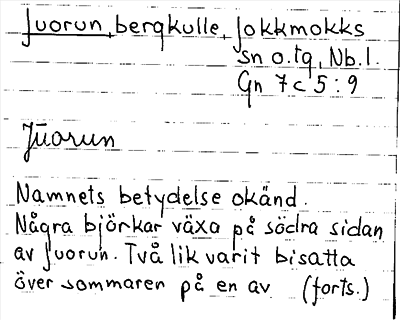 Juorun, bergkulle, Jokkmokks
sn o. tg, Nb. l.
Gn 7 c 5 : 9
Jūorun
Namnets betydelse okänd.
Några björkar växa på södra sidan
av Juorun. Två lik varit bisatta
över sommaren på en av (forts.)